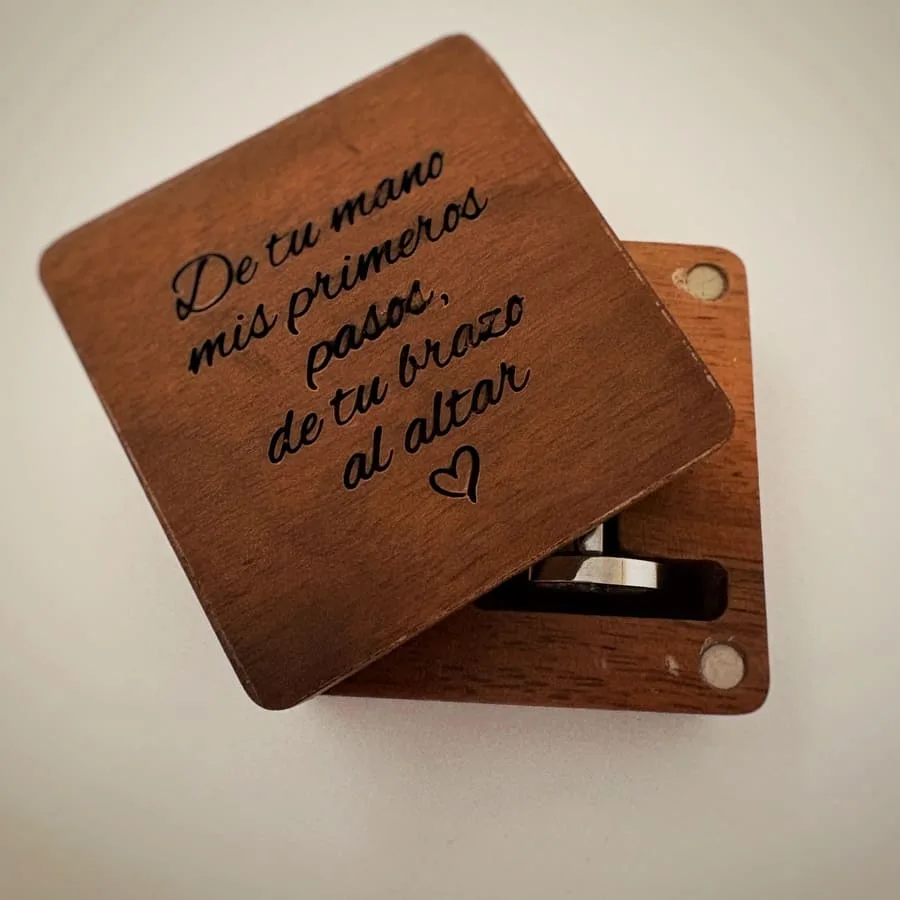 De tu mano
mis primeros
pasos,
de tu brazo
al altar